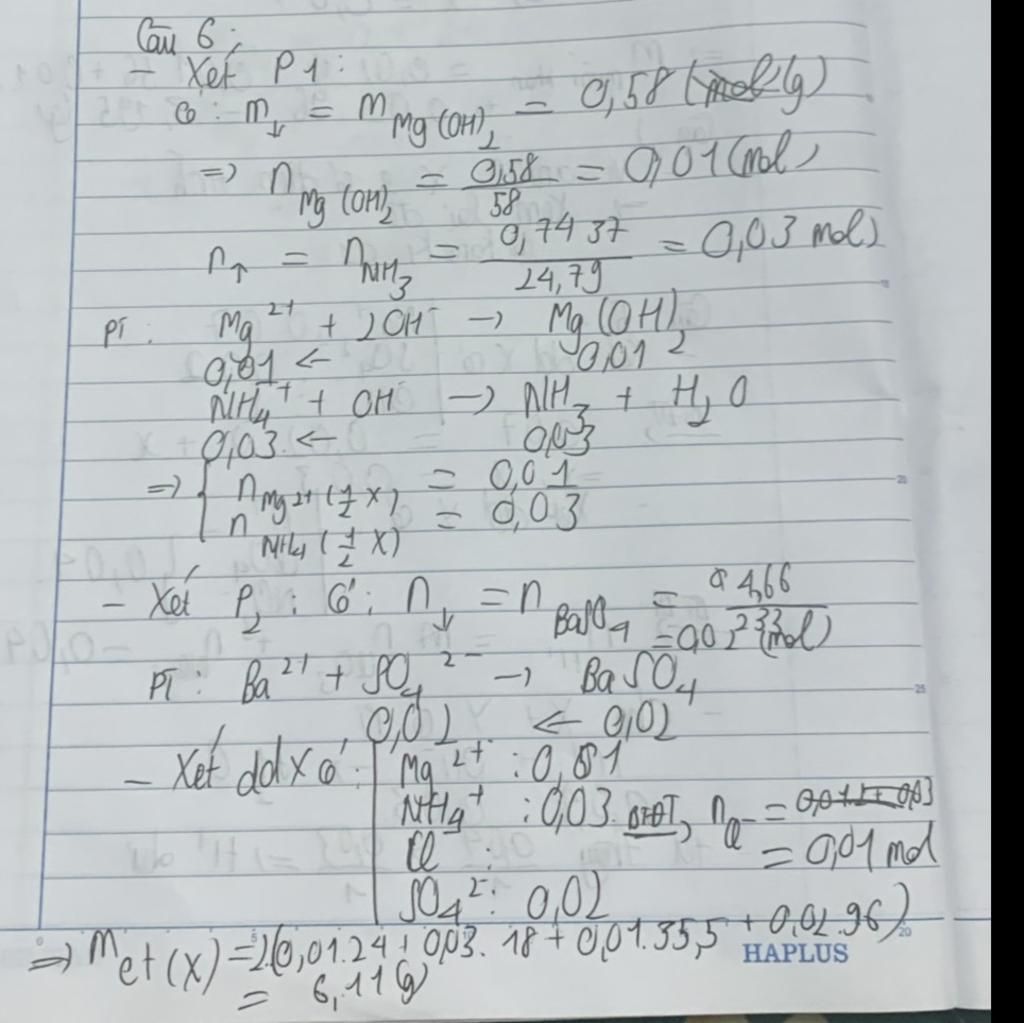 Câu 6:
- Xét P1:
Có: m↓ = m Mg(OH)2 = 0,58 (mol (g)
=> n Mg(OH)2 = 0,58/58 = 0,01 (mol)
n↑ = n NH3 = 0,7437/24,79 = 0,03 mol)
PT: Mg2+ + 2OH- → Mg(OH)2
0,01 ← 0,01
NH4+ + OH- → NH3 + H2O
0,03 ← 0,03
=> { n Mg2+ (1/2 X) = 0,01
n NH4 (1/2 X) = 0,03
- Xét P2: Có: n↓ = n BaSO4 = 4,66/233
= 0,02 (mol)
PT: Ba2+ + SO4 2- → BaSO4
0,02 ← 0,02
- Xét ddX có: Mg2+ : 0,01
NH4+ : 0,03. BTĐT, nCl- = 0,01.2+0,03
Cl : = 0,01 mol
SO4 2-: 0,02
=> m ct(X) = 2.(0,01.24 + 0,03.18 + 0,01.35,5 + 0,02.96)
= 6,11 (g)
HAPLUS